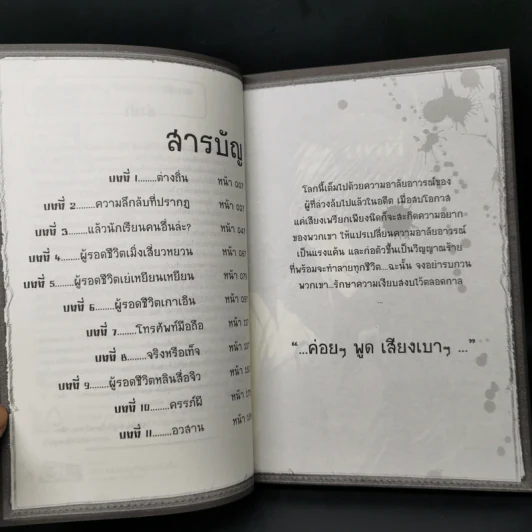 สารบัญ
บทที่ 1........ต่างถิ่น หน้า 007
บทที่ 2........ความลึกลับที่ปรากฏ หน้า
บทที่ 3........แล้วนักเรียนคนอื่นล่ะ? หน้า 047
บทที่ 4........ผู้รอดชีวิตเมิ่งเสี่ยวหยวน หน้า
บทที่ 5........ผู้รอดชีวิตเย่เหยียนเหยียน หน้า 075
บทที่ 6........ผู้รอดชีวิตเกาเอิน หน้า 097
บทที่ 7........โทรศัพท์มือถือ หน้า
บทที่ 8........จริงหรือเท็จ หน้า
บทที่ 9........ผู้รอดชีวิตหลินสื่อจิว หน้า
บทที่ 10........ครรภ์ผี หน้า
บทที่ 11........อวสาน หน้า
โลกนี้เต็มไปด้วยความอาลัยอาวรณ์ของ
ผู้ที่ล่วงลับไปแล้วในอดีต เมื่อสบโอกาส
แค่เสียงเพรียกเพียงนิดก็จะสะกิดความอยาก
ของพวกเขา ให้แปรเปลี่ยนความอาลัยอาวรณ์
เป็นแรงแค้น และก่อตัวขึ้นเป็นวิญญาณร้าย
ที่พร้อมจะทำลายทุกชีวิต...ฉะนั้น จงอย่ารบกวน
พวกเขา...รักษาความเงียบสงบไว้ตลอดกาล
“...ค่อยๆ พูด เสียงเบาๆ ...”